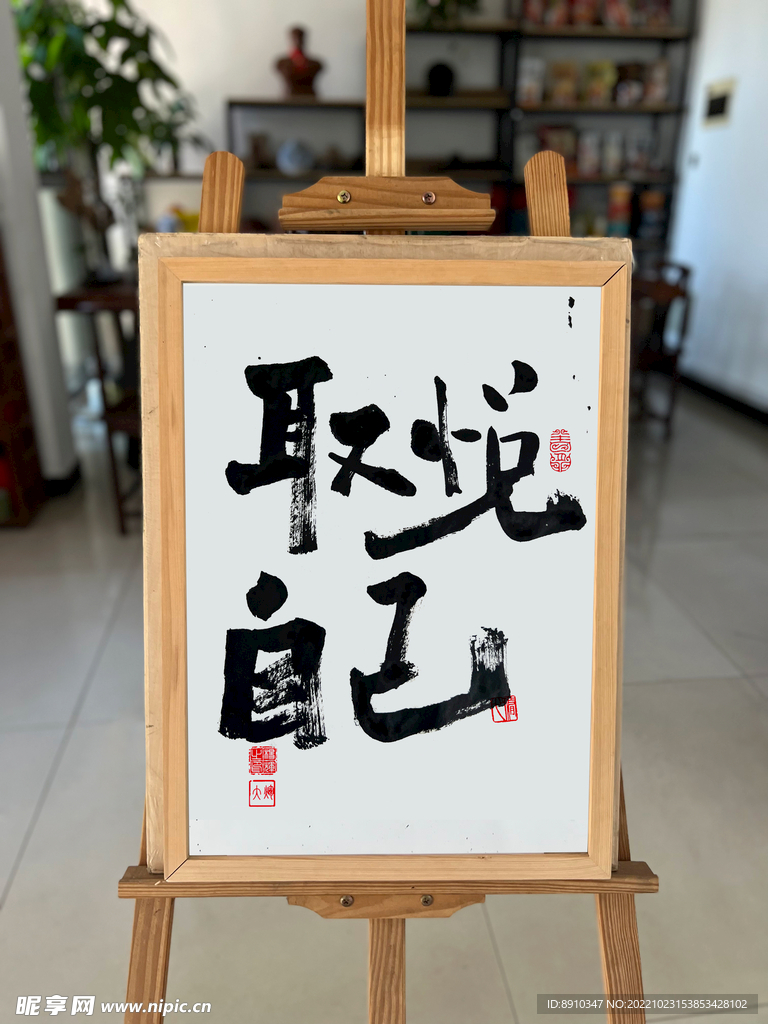 取悦
自己
昵享网 www.nipic.cn
ID:8910347 NO:20221023153853428102